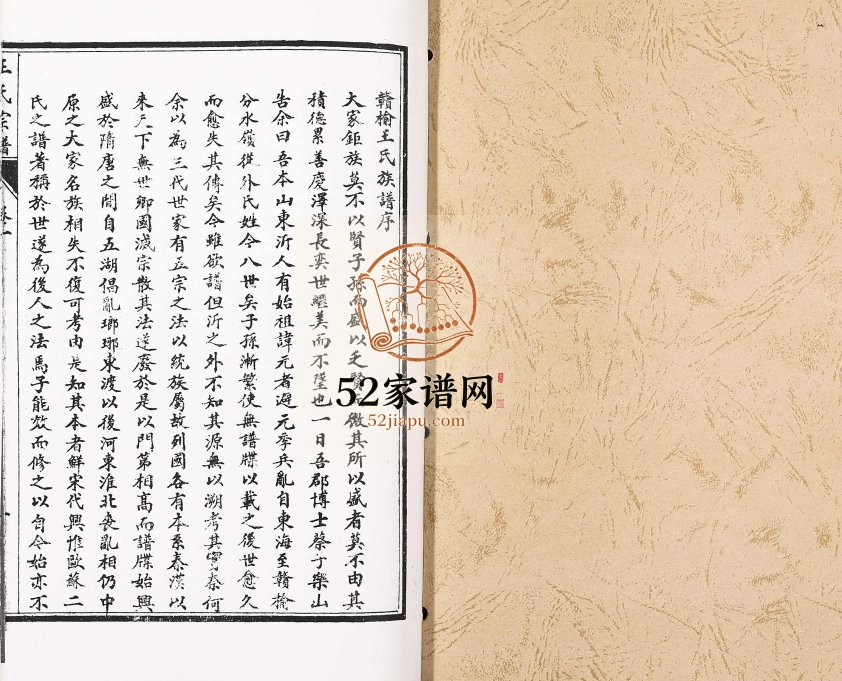 贛榆王氏族譜序
大家鉅族莫不以賢子孫而盛以乏賢微其所以盛者莫不由其
積德累善慶澤深長奕世繼美而不墜也一日吾郡博士蔡子樂山
告余曰吾本山東沂人有始祖諱元者避元季兵亂自東海至贛榆
分水嶺從外氏姓今八世矣子孫漸繁使無譜牒以載之後世愈久
而愈失其傳矣今雖欲譜但沂之外不知其源無以溯考其實奈何
余以為三代世家有五宗之法以統族屬故列國各有本系秦漢以
來天下無世卿國滅宗散其法遂廢於是以門第相高而譜牒始興
盛於隋唐之間自五湖倡亂瑯琊東渡以後河東淮北喪亂相仍中
原之大家名族相失不復可考由是知其本者鮮宋代興惟歐蘇二
氏之譜著稱於世遂為後人之法焉子能效而修之以自今始亦不
王氏宗譜
卷一
52家谱网
52jiapu.com